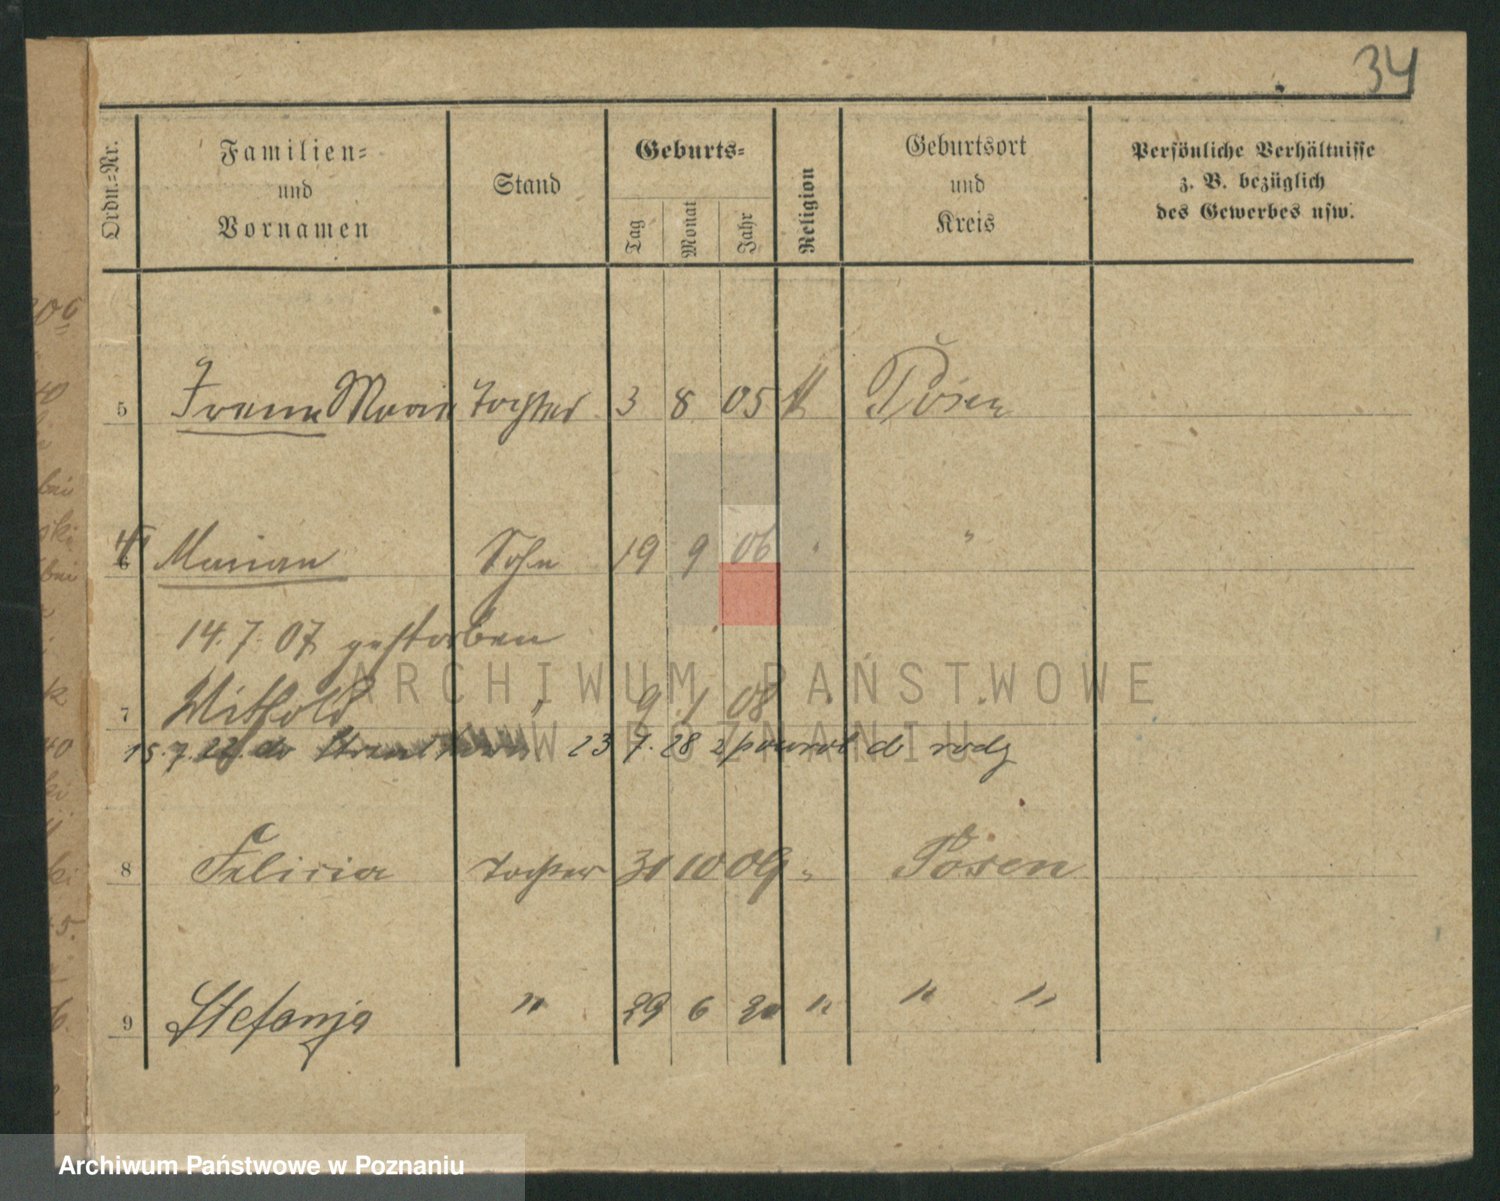 34
Ordn.-Nr.
Familien-
und
Vornamen
Stand
Geburts-
Tag
Monat
Jahr
Religion
Geburtsort
und
Kreis
Persönliche Verhältnisse
z. B. bezüglich
des Gewerbes usw.
5 Irena Marie Tochter 3 8 05 k Posen
6 Marian Sohn 19 9 06 " "
14.7.07 gestorben
7 Withold " 9 1 08 " "
15.7. do 23 7. 28 z powrot do rodz
8 Felicia Tochter 31 10 09 " Posen
9 Stefanja " 29 6 20 " " "
ARCHIWUM PAŃSTWOWE
W POZNANIU
Archiwum Państwowe w Poznaniu